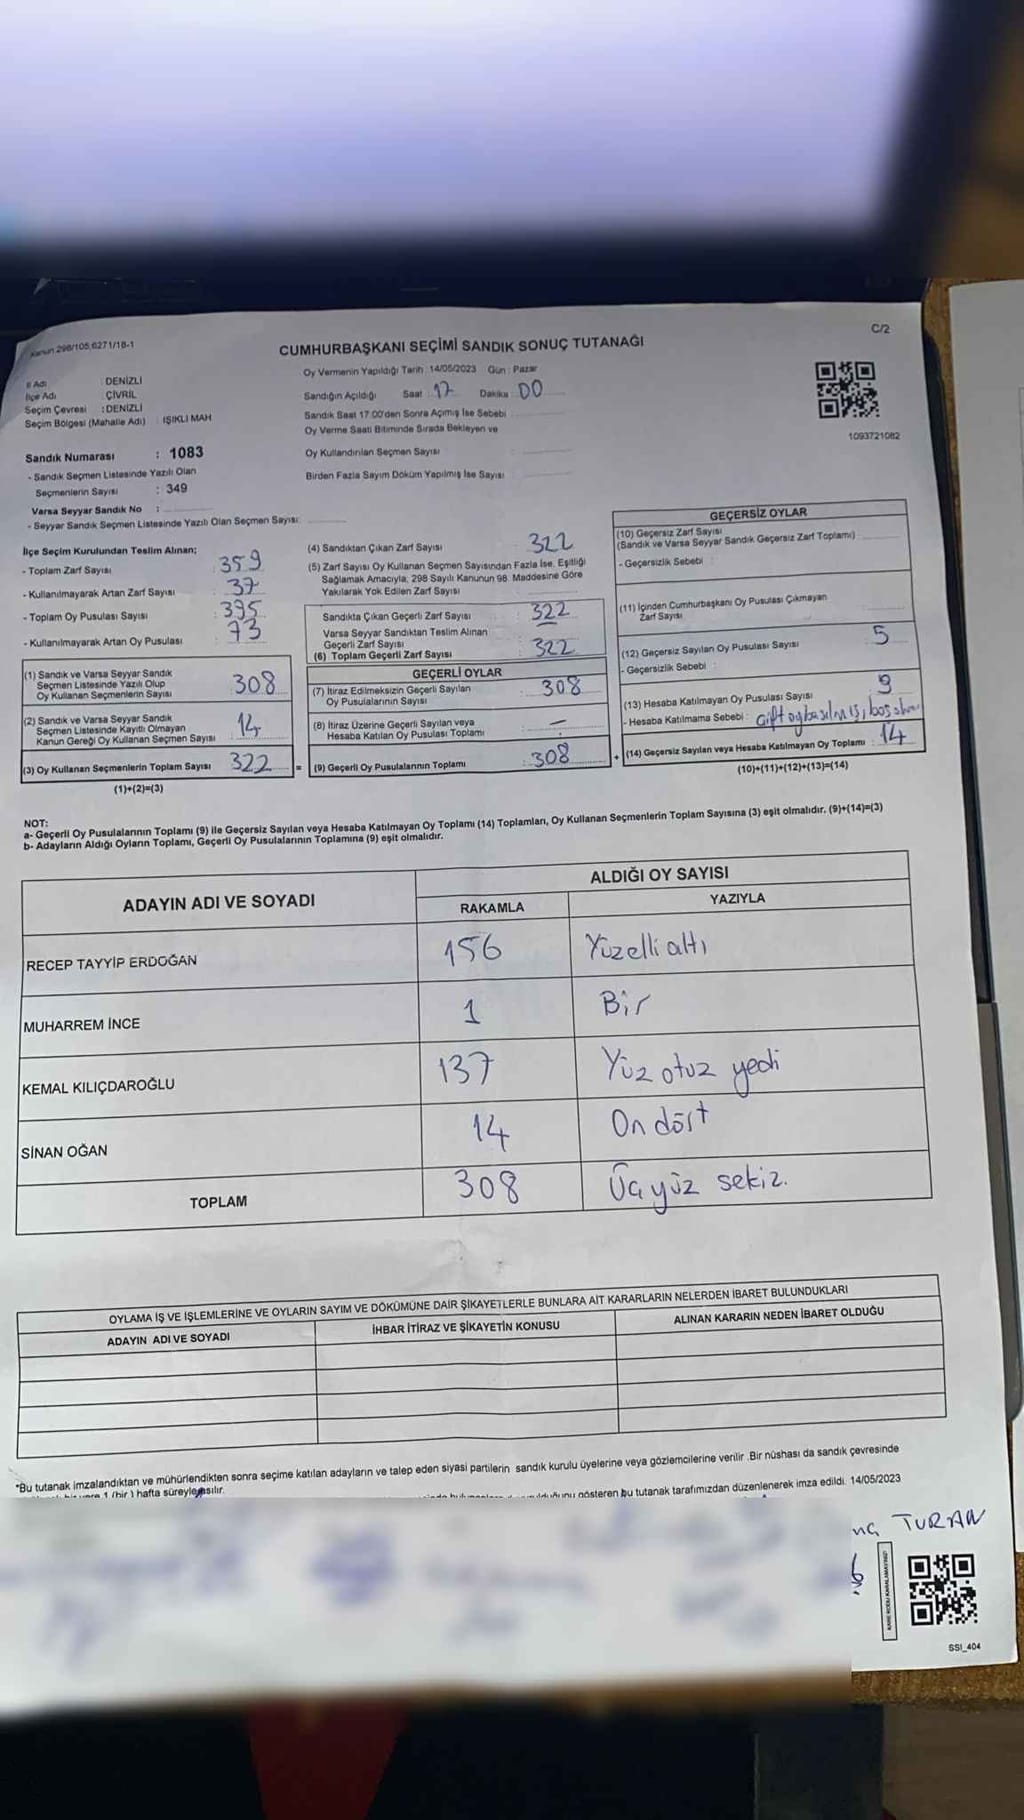 Kanun 298/105,6271/18-1
C/2
CUMHURBAŞKANI SEÇİMİ SANDIK SONUÇ TUTANAĞI
İl Adı : DENİZLİ
İlçe Adı : ÇİVRİL
Seçim Çevresi : DENİZLİ
Seçim Bölgesi (Mahalle Adı) : IŞIKLI MAH
Sandık Numarası : 1083
- Sandık Seçmen Listesinde Yazılı Olan
Seçmenlerin Sayısı : 349
Varsa Seyyar Sandık No :
- Seyyar Sandık Seçmen Listesinde Yazılı Olan Seçmen Sayısı:
Oy Vermenin Yapıldığı Tarih :14/05/2023 Gün : Pazar
Sandığın Açıldığı Saat : 17 Dakika : 00
Sandık Saat 17:00'den Sonra Açımış İse Sebebi
Oy Verme Saati Bitiminde Sırada Bekleyen ve
Oy Kullandırılan Seçmen Sayısı :
Birden Fazla Sayım Döküm Yapılmış İse Sayısı
1093721082
İlçe Seçim Kurulundan Teslim Alınan;
- Toplam Zarf Sayısı : 359
- Kullanılmayarak Artan Zarf Sayısı : 37
- Toplam Oy Pusulası Sayısı : 395
- Kullanılmayarak Artan Oy Pusulası : 73
(1) Sandık ve Varsa Seyyar Sandık
Seçmen Listesinde Yazılı Olup
Oy Kullanan Seçmenlerin Sayısı : 308
(2) Sandık ve Varsa Seyyar Sandık
Seçmen Listesinde Kayıtlı Olmayan
Kanun Gereği Oy Kullanan Seçmen Sayısı : 14
(3) Oy Kullanan Seçmenlerin Toplam Sayısı : 322
(1)+(2)=(3)
(4) Sandıktan Çıkan Zarf Sayısı : 322
(5) Zarf Sayısı Oy Kullanan Seçmen Sayısından Fazla İse, Eşitliği
Sağlamak Amacıyla, 298 Sayılı Kanunun 98. Maddesine Göre
Yakılarak Yok Edilen Zarf Sayısı :
Sandıkta Çıkan Geçerli Zarf Sayısı : 322
Varsa Seyyar Sandıktan Teslim Alınan
Geçerli Zarf Sayısı :
(6) Toplam Geçerli Zarf Sayısı : 322
GEÇERLİ OYLAR
(7) İtiraz Edilmeksizin Geçerli Sayılan
Oy Pusulalarının Sayısı : 308
(8) İtiraz Üzerine Geçerli Sayılan veya
Hesaba Katılan Oy Pusulası Toplamı : —
= (9) Geçerli Oy Pusulalarının Toplamı : 308
GEÇERSİZ OYLAR
(10) Geçersiz Zarf Sayısı
(Sandık ve Varsa Seyyar Sandık Geçersiz Zarf Toplamı) :
- Geçersizlik Sebebi :
(11) İçinden Cumhurbaşkanı Oy Pusulası Çıkmayan
Zarf Sayısı :
(12) Geçersiz Sayılan Oy Pusulası Sayısı : 5
- Geçersizlik Sebebi :
(13) Hesaba Katılmayan Oy Pusulası Sayısı : 9
- Hesaba Katılmama Sebebi : Çift oy basılmış, boş
+ (14) Geçersiz Sayılan veya Hesaba Katılmayan Oy Toplamı : 14
(10)+(11)+(12)+(13)=(14)
NOT:
a- Geçerli Oy Pusulalarının Toplamı (9) ile Geçersiz Sayılan veya Hesaba Katılmayan Oy Toplamı (14) Toplamları, Oy Kullanan Seçmenlerin Toplam Sayısına (3) eşit olmalıdır. (9)+(14)=(3)
b- Adayların Aldığı Oyların Toplamı, Geçerli Oy Pusulalarının Toplamına (9) eşit olmalıdır.
ADAYIN ADI VE SOYADI
ALDIĞI OY SAYISI
RAKAMLA YAZIYLA
RECEP TAYYİP ERDOĞAN 156 Yüzelli altı
MUHARREM İNCE 1 Bir
KEMAL KILIÇDAROĞLU 137 Yüz otuz yedi
SİNAN OĞAN 14 On dört
TOPLAM 308 Üçyüz sekiz.
OYLAMA İŞ VE İŞLEMLERİNE VE OYLARIN SAYIM VE DÖKÜMÜNE DAİR ŞİKAYETLERLE BUNLARA AİT KARARLARIN NELERDEN İBARET BULUNDUKLARI
ADAYIN ADI VE SOYADI İHBAR İTİRAZ VE ŞİKAYETİN KONUSU ALINAN KARARIN NEDEN İBARET OLDUĞU
*Bu tutanak imzalandıktan ve mühürlendikten sonra seçime katılan adayların ve talep eden siyasi partilerin sandık kurulu üyelerine veya gözlemcilerine verilir .Bir nüshası da sandık çevresinde
1 (bir ) hafta süreyle asılır.
gösteren bu tutanak tarafımızdan düzenlenerek imza edildi. 14/05/2023
TURAN
KARE KODU KARALAMAYINIZ!
SSI_404